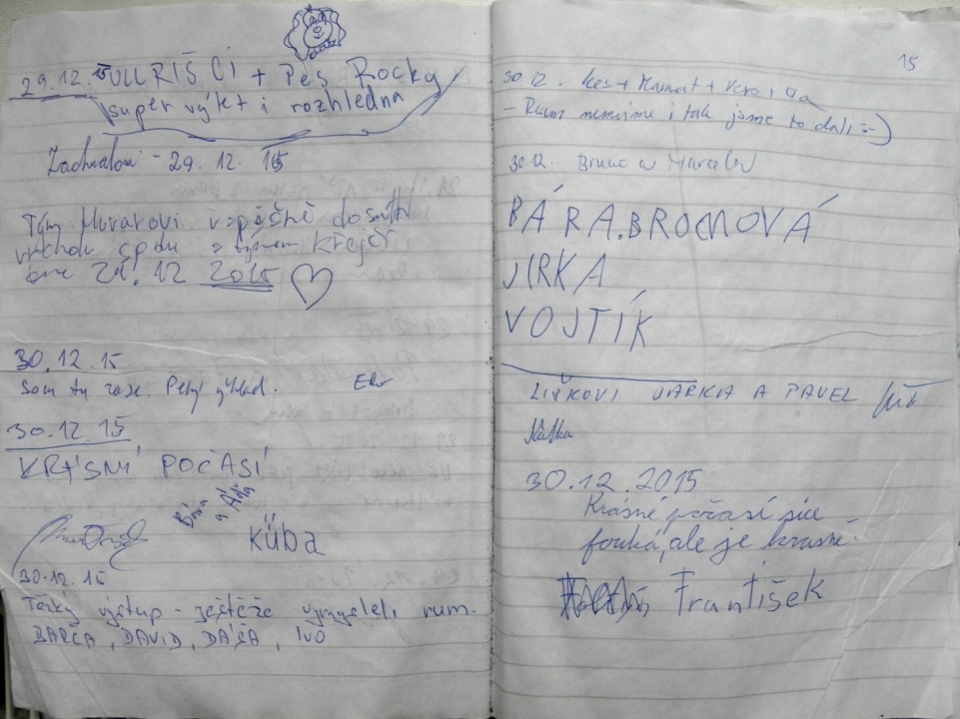 29.12.15 ULLRIŠ CÍ + Pes Rocky
super výkt i rozhledna
Zachvalovi - 29. 12. 15
Týmy úspěšně
vrcholu spolu s krejčí
dne 29. 12 2015
30.12.15
Som tu zase. Pekný výhlad.
30.12.15
KRÁSNÍ POČASÍ
Bára
a Áďa
Küba
30.12.15
Těžký výstup - ještěže vymysleli rum.
BARČA, DAVID, DÁŠA, IVO
15
30.12. + + Vero
- Rum nemáme i tak jsme to dali :-)
30.12. Bruno a
BÁRA.BROMOVÁ
JIRKA
VOJTÍK
LIŠKOVI JARKA A PAVEL
30.12.2015
Krásné počasí sice
fouká, ale je krásně.
František